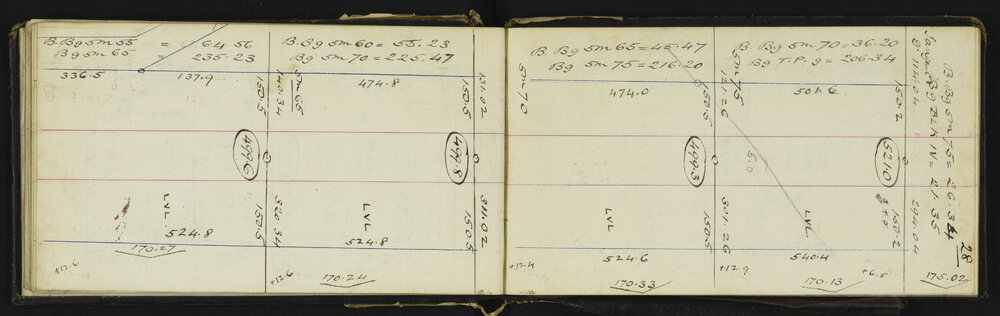 B. Bg Sm 55 = 64.56
Bg Sm 65 = 235.23
336.5
137.9
150.5
140.34
Sm 65
4996
LVL
524.8
150.5
320.34
170.27
+12.6
B. Bg Sm 60 = 55.23
Bg Sm 70 = 225.47
474.8
150.5
131.02
4998
LVL
524.8
150.5
311.02
+12.6
170.24
Sm 70
B. Bg Sm 65 = 45.47
Bg Sm 75 = 216.20
474.0
150.5
121.26
Sm 75
4993
LVL
524.6
150.5
301.26
+12.4
170.33
+12.9
B. Bg Sm 70 = 36.20
Bg T.P. 9 = 206.34
504.6
150.2
5210
5.0
LVL
540.4
150.2
T.P.
170.13
+6.5
9.114.04
294.04
B. Bg Sm 75 = 26.34
Bg BLK IV = 21.35
28
175.02